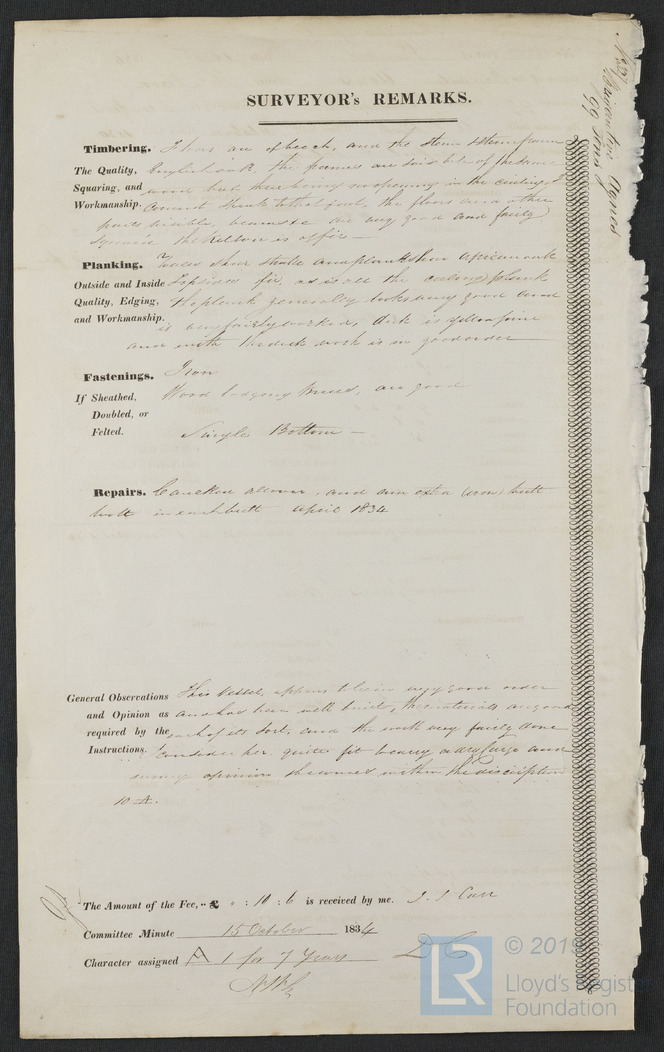 SURVEYOR's REMARKS.
Timbering. Floors are of beech, and the stem & stern frame
The Quality, English oak, the frames are of the same
Squaring, and wood but there being no opening in the ceiling I
Workmanship. cannot speak to that fact, the floors and other
parts visible, are very good and fairly
square the Kelson is of fir —
Planking. Wales sheer strake and plankshear African oak
Outside and Inside fir, as is all the ceiling plank
Quality, Edging, The plank generally looks very good and
and Workmanship. is very fairly worked, deck is yellow pine
and with the deck work is in good order
Fastenings. Iron
If Sheathed, Wood lodging knees, are good
Doubled, or
Felted. Single Bottom —
Repairs. Caulked all over, and an extra (iron) butt
bolt in each butt April 1834
General Observations This Vessel, appears to be in very good order
and Opinion as and has been well built, the materials are good
required by the each of its sort, and the work very fairly done
Instructions. I consider her quite fit to carry a dry cargo and
in my opinion she comes within the discription
10 A.
The Amount of the Fee, £ " : 10 : 6 is received by me. J. J. Carr
Committee Minute 15 October 1834
Character assigned A 1 for 7 Years
Brigantine Agnes
99 Tons
LR
© 2019
Lloyd's Register
Foundation